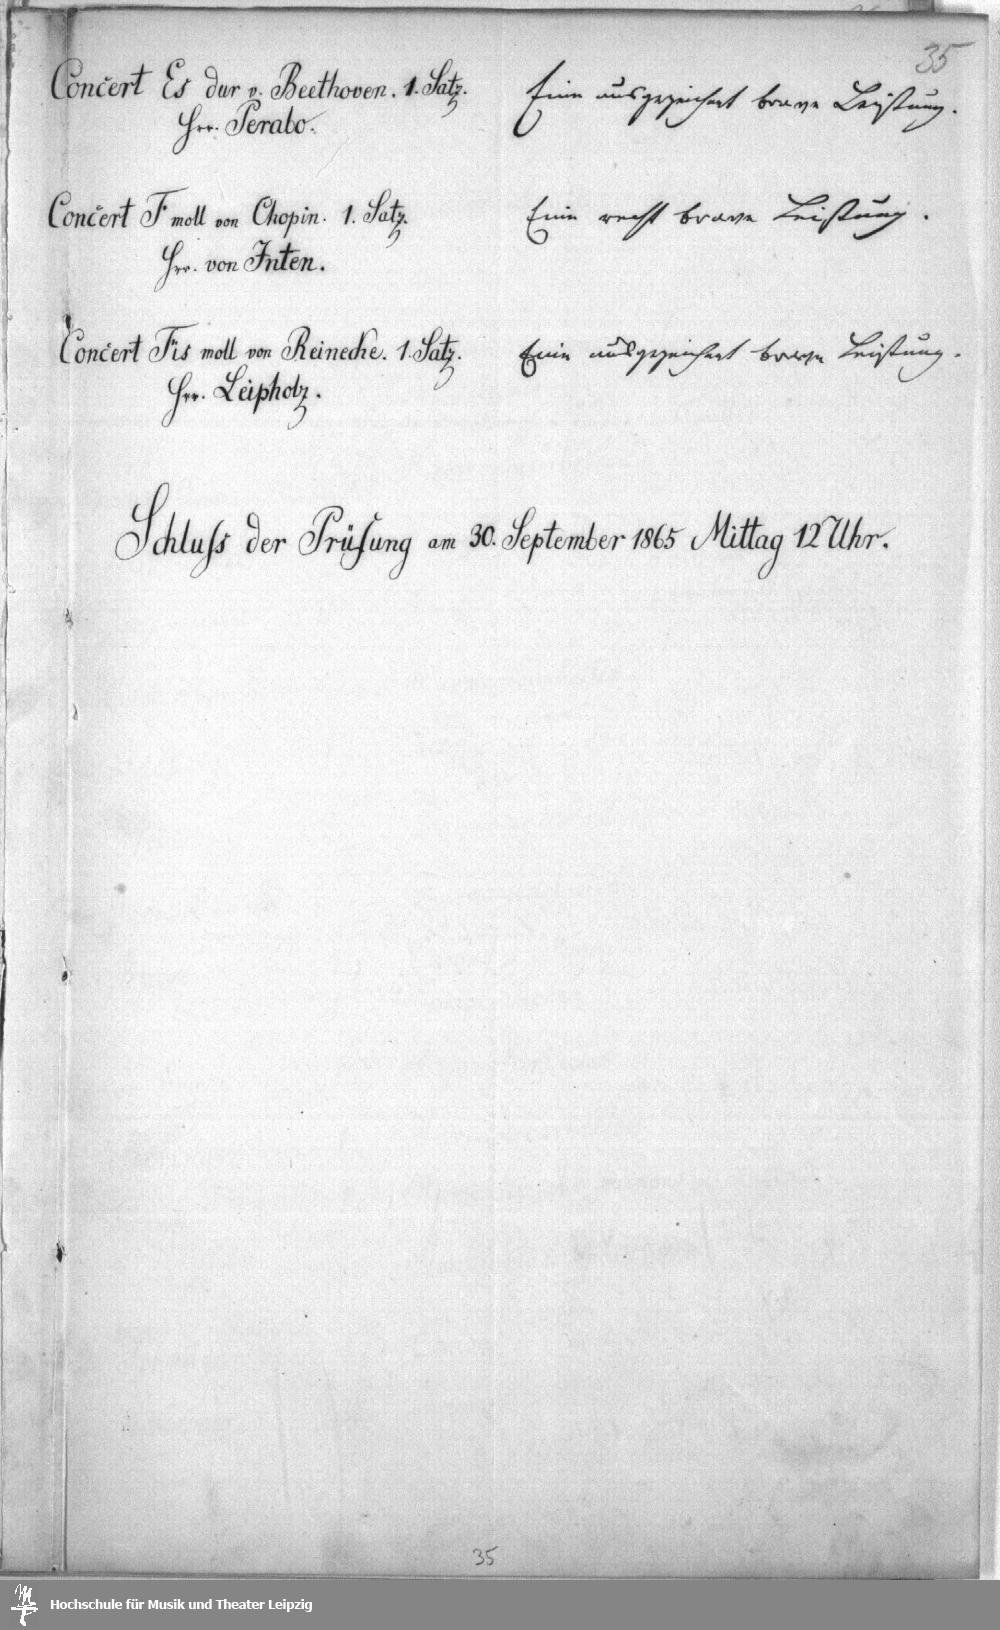 35
Concert Es dur v. Beethoven. 1. Satz.
Hrr. Perabo.
Eine ausgezeichnet brave Leistung.
Concert F moll von Chopin. 1. Satz.
Hrr. von Inten.
Eine recht brave Leistung.
Concert Fis moll von Reinecke. 1. Satz.
Hrr. Leipholz.
Eine ausgezeichnet brave Leistung.
Schluss der Prüfung am 30. September 1865 Mittag 12 Uhr.
35
Hochschule für Musik und Theater Leipzig